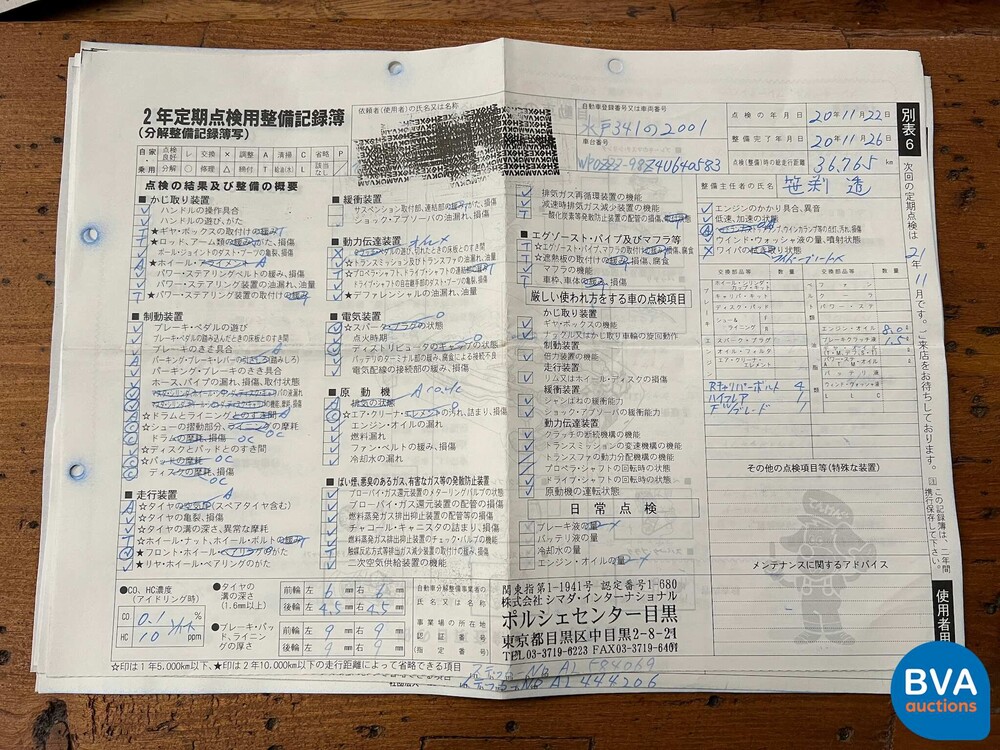 2年定期点検用整備記録簿
(分解整備記録簿写)
依頼者(使用者)の氏名又は名称
自動車登録番号又は車両番号
水戸341の2001
車台番号
点検の年月日 20年11月22日
整備完了年月日 20年11月26日
点検(整備)時の総走行距離 36,765 km
整備主任者の氏名
別表6
自家乗用 点検良好 レ 交換 × 調整 A 清掃 C 省略 P
分解 ○ 修理 △ 締付 T 給油(水) L 該当なし /
点検の結果及び整備の概要
■かじ取り装置
ハンドルの操作具合
ハンドルの遊び、がた
★ギヤ・ボックスの取付けの緩み
★ロッド、アーム類の緩み、がた、損傷
ボール・ジョイントのダスト・ブーツの亀裂、損傷
★ホイール・アライメント
パワー・ステアリングベルトの緩み、損傷
パワー・ステアリング装置の油漏れ、油量
★パワー・ステアリング装置の取付けの緩み
■制動装置
ブレーキ・ペダルの遊び
ブレーキ・ペダルの踏み込んだときの床板とのすき間
ブレーキのきき具合
パーキング・ブレーキ・レバーの引きしろ(踏みしろ)
パーキング・ブレーキのきき具合
ホース、パイプの漏れ、損傷、取付状態
☆ドラムとライニングとのすき間
☆シューの摺動部分、ライニングの摩耗
ドラムの摩耗、損傷
☆ディスクとパッドとのすき間
☆パッドの摩耗
ディスクの摩耗、損傷
■走行装置
☆タイヤの空気圧(スペアタイヤ含む)
☆タイヤの亀裂、損傷
☆タイヤの溝の深さ、異常な摩耗
☆ホイール・ナット、ホイール・ボルトの緩み
★フロント・ホイール・ベアリングのがた
★リヤ・ホイール・ベアリングのがた
■緩衝装置
サスペンション取付部、連結部の緩み、がた、損傷
ショック・アブソーバの油漏れ、損傷
■動力伝達装置
☆トランスミッション及びトランスファの油漏れ、油量
☆プロペラ・シャフト、ドライブ・シャフトの連結部の緩み
ドライブ・シャフトの自在継手部のダスト・ブーツの亀裂、損傷
★デファレンシャルの油漏れ、油量
■電気装置
☆スパーク・プラグの状態
点火時期
ディストリビュータのキャップの状態
バッテリのターミナル部の緩み、腐食による接続不良
電気配線の接続部の緩み、損傷
■原動機
排気の状態
☆エア・クリーナ・エレメントの汚れ、詰まり、損傷
エンジン・オイルの漏れ
燃料漏れ
ファン・ベルトの緩み、損傷
冷却水の漏れ
■ばい煙、悪臭のあるガス、有害なガス等の発散防止装置
ブローバイ・ガス還元装置のメターリングバルブの状態
ブローバイ・ガス還元装置の配管の損傷
燃料蒸発ガス排出抑止装置の配管等の損傷
チャコール・キャニスタの詰まり、損傷
燃料蒸発ガス排出抑止装置のチェック・バルブの機能
触媒反応方式等排出ガス減少装置の取付けの緩み、損傷
二次空気供給装置の機能
排気ガス再循環装置の機能
減速時排気ガス減少装置の機能
一酸化炭素等発散防止装置の配管の損傷、取付状態
■エグゾースト・パイプ及びマフラ等
☆エグゾースト・パイプ、マフラの取付けの緩み、損傷、腐食
☆遮熱板の取付けの緩み、損傷、腐食
マフラの機能
車枠、車体の緩み、損傷
厳しい使われ方をする車の点検項目
かじ取り装置
ギヤ・ボックスの機能
ナックル又はかじ取り車輪の旋回動作
制動装置
倍力装置の機能
走行装置
リム又はホイール・ディスクの損傷
緩衝装置
シャシばねの緩衝能力
ショック・アブソーバの緩衝能力
動力伝達装置
クラッチの断続機構の機能
トランスミッションの変速機構の機能
トランスファの動力分配機構の機能
プロペラ・シャフトの回転時の状態
ドライブ・シャフトの回転時の状態
原動機の運転状態
日常点検
ブレーキ液の量
バッテリ液の量
冷却水の量
エンジン・オイルの量
エンジンのかかり具合、異音
低速、加速の状態
ウインド・ウォッシャ液の量、噴射状態
ワイパの拭き取り状態
交換部品等 数量 交換部品等 数量
ホイール・シリンダ・カップ、キット
キャリパ・キット
ディスク・パッド
シュー&ライニング F R
スパーク・プラグ
オイル・フィルタ
エア・クリーナ・エレメント
エンジン・オイル 8.0
ブレーキクラッチ液
バッテリ液
L L C
Rキャリパーボルト 4
その他の点検項目等(特殊な装置)
メンテナンスに関するアドバイス
次回の定期点検は21年11月です。ご来店をお待ちしております。
この記録簿は、二年間携行保存して下さい。
使用者用
●CO、HC濃度
(アイドリング時)
CO 0.1 %
HC 10 ppm
●タイヤの溝の深さ
(1.6mm以上)
前輪 左 6 mm 右 6 mm
後輪 左 4.5 mm 右 4.5 mm
●ブレーキ・パッド、ライニングの厚さ
前輪 左 9 mm 右 9 mm
後輪 左 9 mm 右 9 mm
自動車分解整備事業者の氏名又は名称
事業場の所在地
認証番号
(指定番号)
関東指第1-1941号 認定番号1-680
株式会社シマダ・インターナショナル
ポルシェセンター目黒
東京都目黒区中目黒2-8-21
TEL03-3719-6223 FAX03-3719-6401
☆印は1年5,000km以下、★印は2年10,000km以下の走行距離によって省略できる項目
BVA
auctions